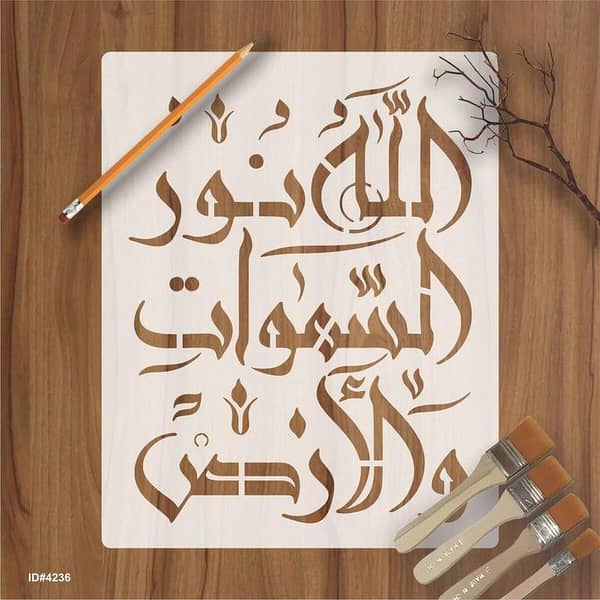 اللّٰهُ نُورُ
السَّمَوَاتِ
وَالْأَرْضِ
ID#4236